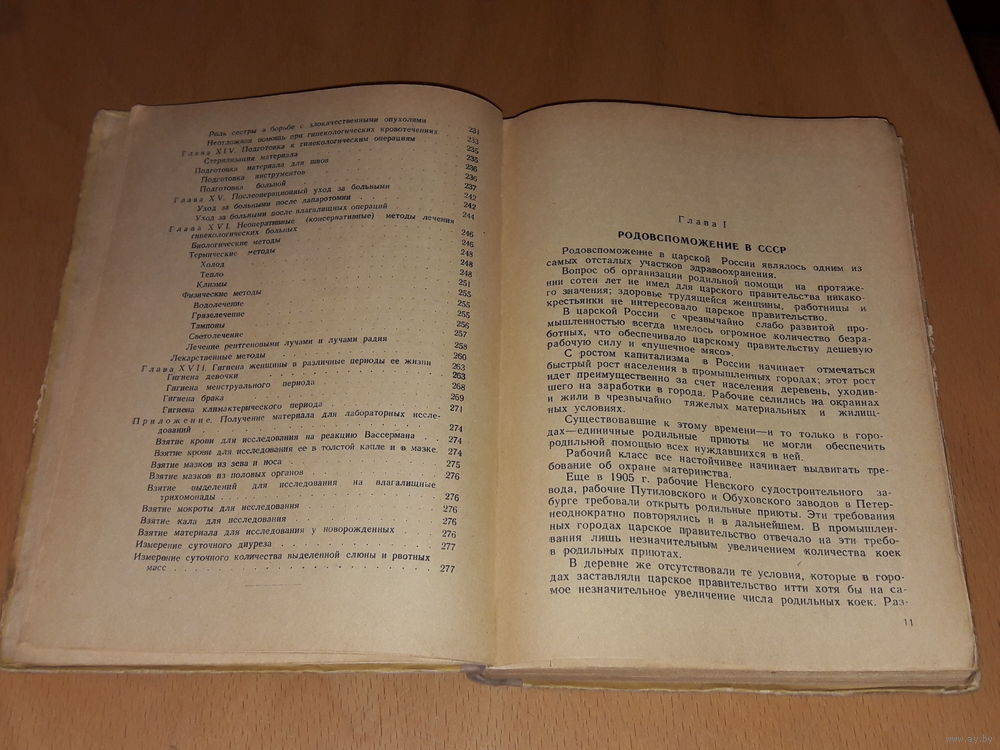 Роль сестры в борьбе с злокачественными опухолями 231
Неотложная помощь при гинекологических кровотечениях . 233
Глава XIV. Подготовка к гинекологическим операциям 235
Стерилизация материала 235
Подготовка материала для швов 236
Подготовка инструментов 236
Подготовка больной 237
Глава XV. Послеоперационный уход за больными 242
Уход за больными после лапаротомии 242
Уход за больными после влагалищных операций 244
Глава XVI. Неоперативные (консервативные) методы лечения
гинекологических больных 246
Биологические методы 246
Термические методы 248
Холод 248
Тепло 248
Клизмы 251
Физические методы 255
Водолечение 255
Грязелечение 255
Тампоны 256
Светолечение 257
Лечение рентгеновыми лучами и лучами радия 258
Лекарственные методы 260
Глава XVII. Гигиена женщины в различные периоды ее жизни 263
Гигиена девочки 263
Гигиена менструального периода 268
Гигиена брака 269
Гигиена климактерического периода 271
Приложение. Получение материала для лабораторных иссле-
дований 274
Взятие крови для исследования на реакцию Вассермана 274
Взятие крови для исследования ее в толстой капле и в мазке. 274
Взятие мазков из зева и носа 275
Взятие мазков из половых органов 276
Взятие выделений для исследования на влагалищные
трихомонады 276
Взятие мокроты для исследования 276
Взятие кала для исследования 276
Взятие материала для исследования у новорожденных 276
Измерение суточного диуреза 277
Измерение суточного количества выделенной слюны и рвотных
масс 277
Глава I
РОДОВСПОМОЖЕНИЕ В СССР
Родовспоможение в царской России являлось одним из
самых отсталых участков здравоохранения.
Вопрос об организации родильной помощи на протяже-
нии сотен лет не имел для царского правительства никако-
го значения; здоровье трудящейся женщины, работницы и
крестьянки не интересовало царское правительство.
В царской России с чрезвычайно слабо развитой про-
мышленностью всегда имелось огромное количество безра-
ботных, что обеспечивало царскому правительству дешевую
рабочую силу и «пушечное мясо».
С ростом капитализма в России начинает отмечаться
быстрый рост населения в промышленных городах; этот рост
идет преимущественно за счет населения деревень, уходив-
шего на заработки в города. Рабочие селились на окраинах
и жили в чрезвычайно тяжелых материальных и жилищ-
ных условиях.
Существовавшие к этому времени—и то только в горо-
дах—единичные родильные приюты не могли обеспечить
родильной помощью всех нуждавшихся в ней.
Рабочий класс все настойчивее начинает выдвигать тре-
бование об охране материнства.
Еще в 1905 г. рабочие Невского судостроительного за-
вода, рабочие Путиловского и Обуховского заводов в Петер-
бурге требовали открыть родильные приюты. Эти требования
неоднократно повторялись и в дальнейшем. В промышлен-
ных городах царское правительство отвечало на эти требо-
вания лишь незначительным увеличением количества коек
в родильных приютах.
В деревне же отсутствовали те условия, которые в горо-
дах заставляли царское правительство итти хотя бы на са-
мое незначительное увеличение числа родильных коек. Раз-
11
www.ay.by